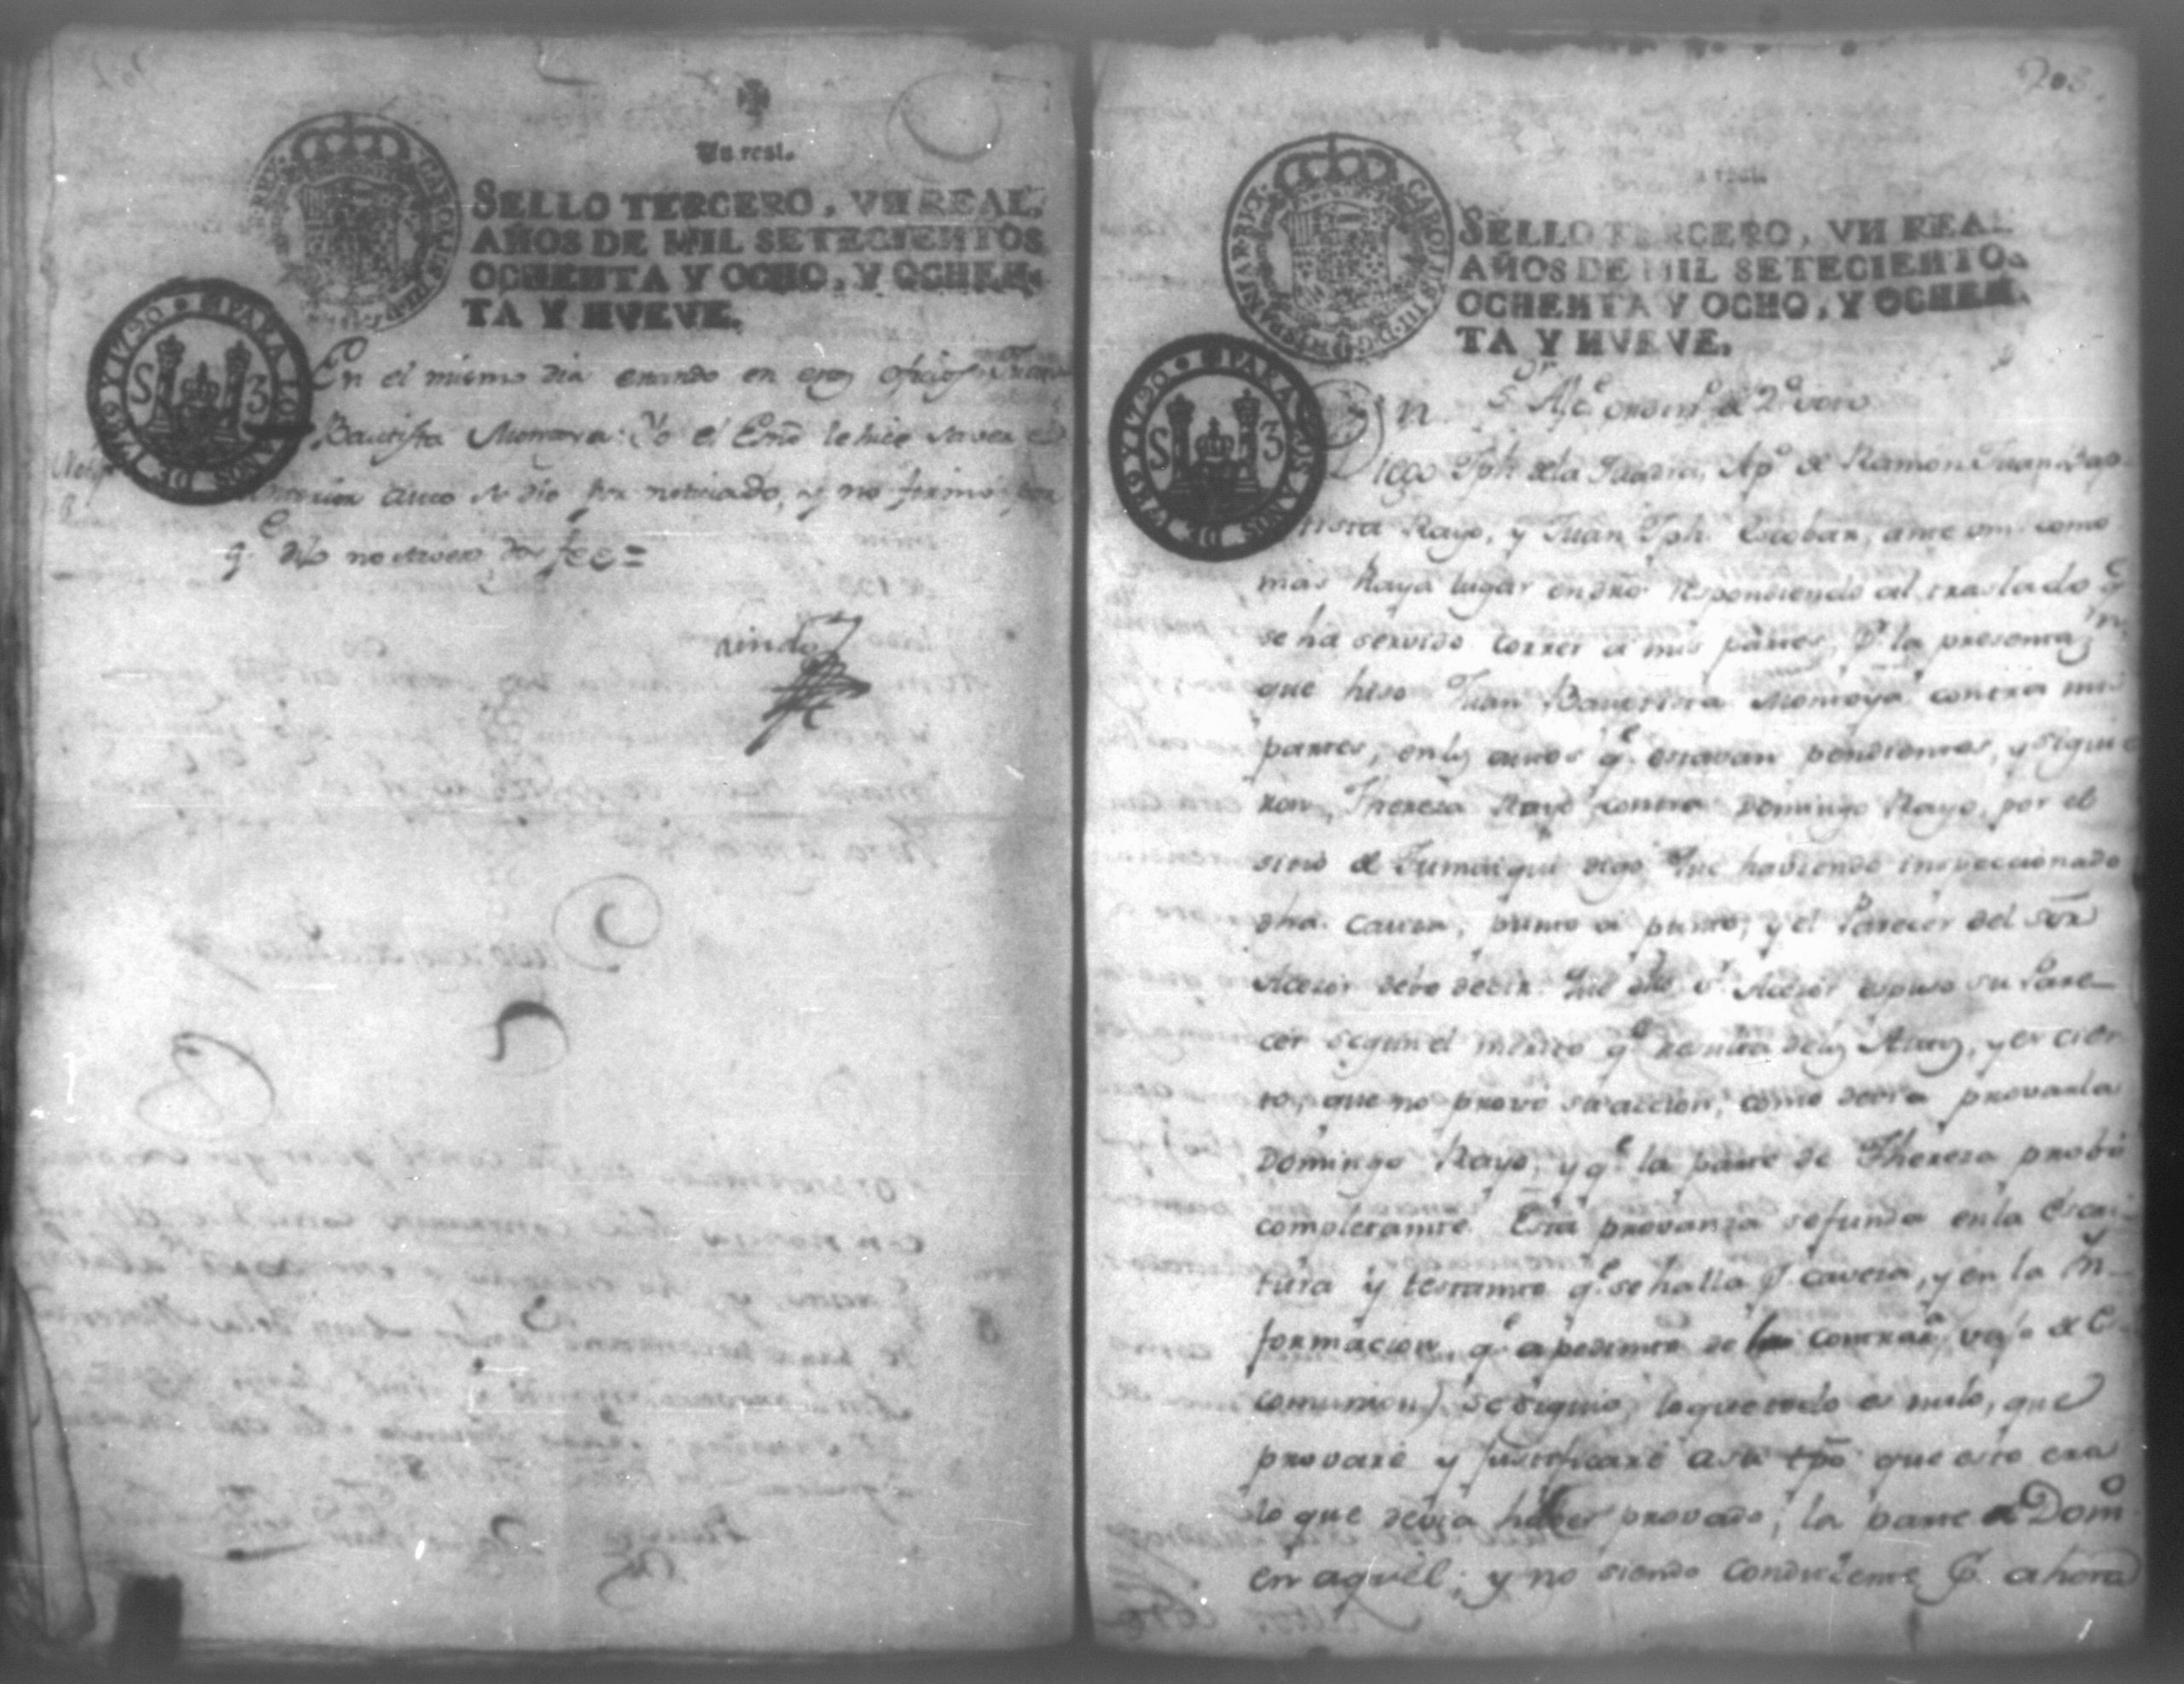 Un real.
SELLO TERCERO, VN REAL,
AÑOS DE MIL SETECIENTOS
OCHENTA Y OCHO, Y OCHEN-
TA Y NVEVE.
PARA LOS AÑOS DE 1789 Y 1790
S 3
En el mismo dia estando en estos oficios Juan
Bautista Montoya: Yo el Esño le hice saver el
anterior auto se dio por noticiado, y no firmó por
q.e dijo no saver doy fee=
203.
SELLO TERCERO, VN REAL
AÑOS DE MIL SETECIENTOS
OCHENTA Y OCHO, Y OCHEN-
TA Y NVEVE.
CAROLUS III D G HISPANIAR REX
PARA LOS AÑOS DE 1789 Y 1790
S 3
S.or Alc.e ordin.o de 2.o voto
Diego Jph. de la Ramon Juan Bap-
tista Rayo, y Juan Jph. Escobar, ante vm. como
mas haya lugar en dro respondiendo al traslado q.e
se ha servido correr a mis partes, de la presentaz.n
que hiso Juan Bauptista Montoya contra mis
partes, en los autos q.e estavan pendientes, y sigui-e
ron, Theresa Rayo contra Domingo Rayo, por el
sitio de digo: Que haviendo inspeccionado
dha. Causa, punto a punto, y el Parecer del Sôr
Acesor devo decir: Que dho s.r Acesor espuso su Pare-
cer segun el merito q.e resulta de los Autos, y es cier
to, que no provó su accion, como devia provarla
Domingo Rayo, y q.e la parte de Theresa probó
completamte. Esta provanza se funda en la Escri-
tura y testamto q.e se halla p.r cavesa, y en la Yn-
formacion, q.e a pedimto de la contrar.a vajo de
comunion) se siguió, lo que todo es nulo, que
provaré y justificaré a su tpo que esto era
lo que devia haber provado, la parte de Dom.o
en aquél; y no siendo conducente p.r ahora